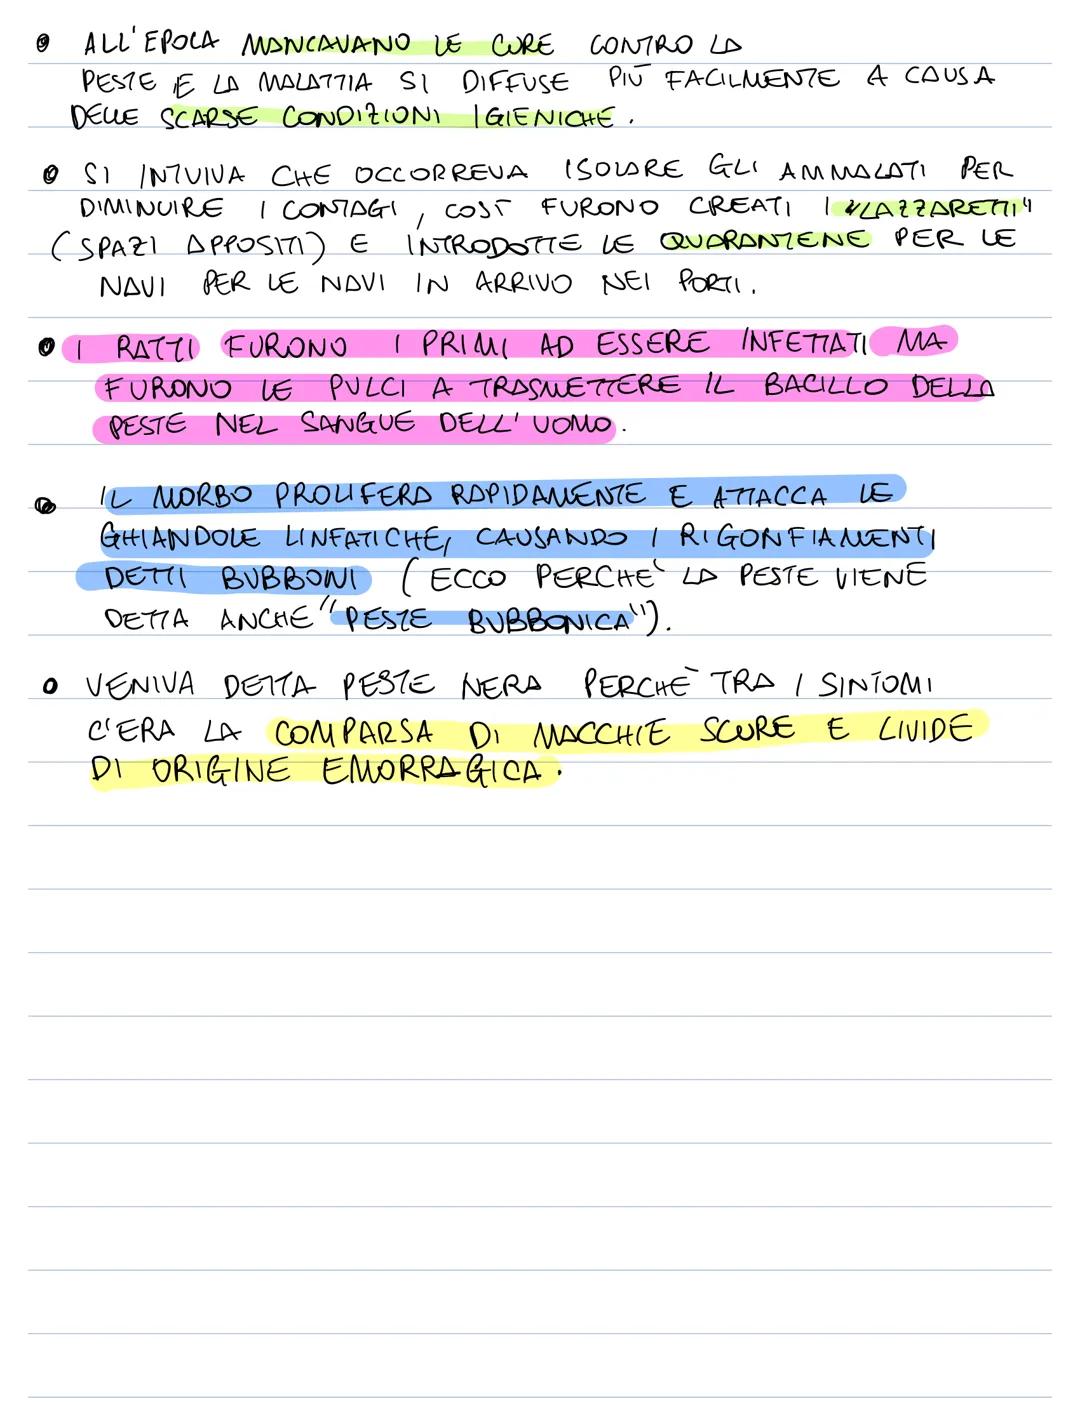 • ALL'EPOCA MANCAVANO LE CURE CONTRO LA
PESTE E LA MALATTIA SI DIFFUSE PIÙ FACILMENTE A CAUSA
DELLE SCARSE CONDIZIONI IGIENICHE.
• SI INTUIVA CHE OCCORREVA ISOLARE GLI AMMALATI PER
DIMINUIRE I CONTAGI, COSÌ FURONO CREATI I "LAZZARETTI"
(SPAZI APPOSITI) E INTRODOTTE LE QUARANTENE PER LE
NAVI PER LE NAVI IN ARRIVO NEI PORTI.
• I RATTI FURONO I PRIMI AD ESSERE INFETTATI MA
FURONO LE PULCI A TRASMETTERE IL BACILLO DELLA
PESTE NEL SANGUE DELL'UOMO.
• IL MORBO PROLIFERA RAPIDAMENTE E ATTACCA LE
GHIANDOLE LINFATICHE, CAUSANDO I RIGONFIAMENTI
DETTI BUBBONI (ECCO PERCHÈ LA PESTE VIENE
DETTA ANCHE "PESTE BUBBONICA").
• VENIVA DETTA PESTE NERA PERCHÈ TRA I SINTOMI
C'ERA LA COMPARSA DI MACCHIE SCURE E LIVIDE
DI ORIGINE EMORRAGICA.